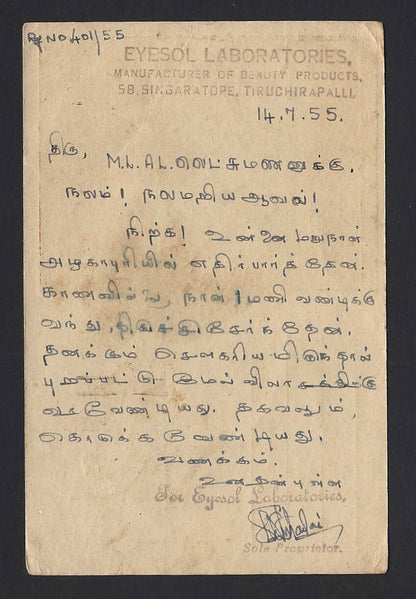 Ref NO 401/55
EYESOL LABORATORIES,
MANUFACTURER OF BEAUTY PRODUCTS,
58, SINGARATOPE, TIRUCHIRAPALLI,
14.7.55.
திரு,
M.L.AL. லெட்சுமணனுக்கு.
நலம்! நலமறிய ஆவல்!
நிற்க! உன்னை மறுநாள்
அழகாபுரியில் எதிர்பார்த்தேன்.
காணவில்லை, நான் 1 மணி வண்டிக்கு
வந்து, சேர்ந்தேன்.
தனக்கும் சௌகரியமிருந்தால்
புறப்பட்டு மேல் விலாசத்திற்கு
வர வேண்டியது. தகவலும்,
கொடுக்க வேண்டியது.
வணக்கம்.
உனதன்புள்ள
For Eyesol Laboratories,
Sole Proprietor.